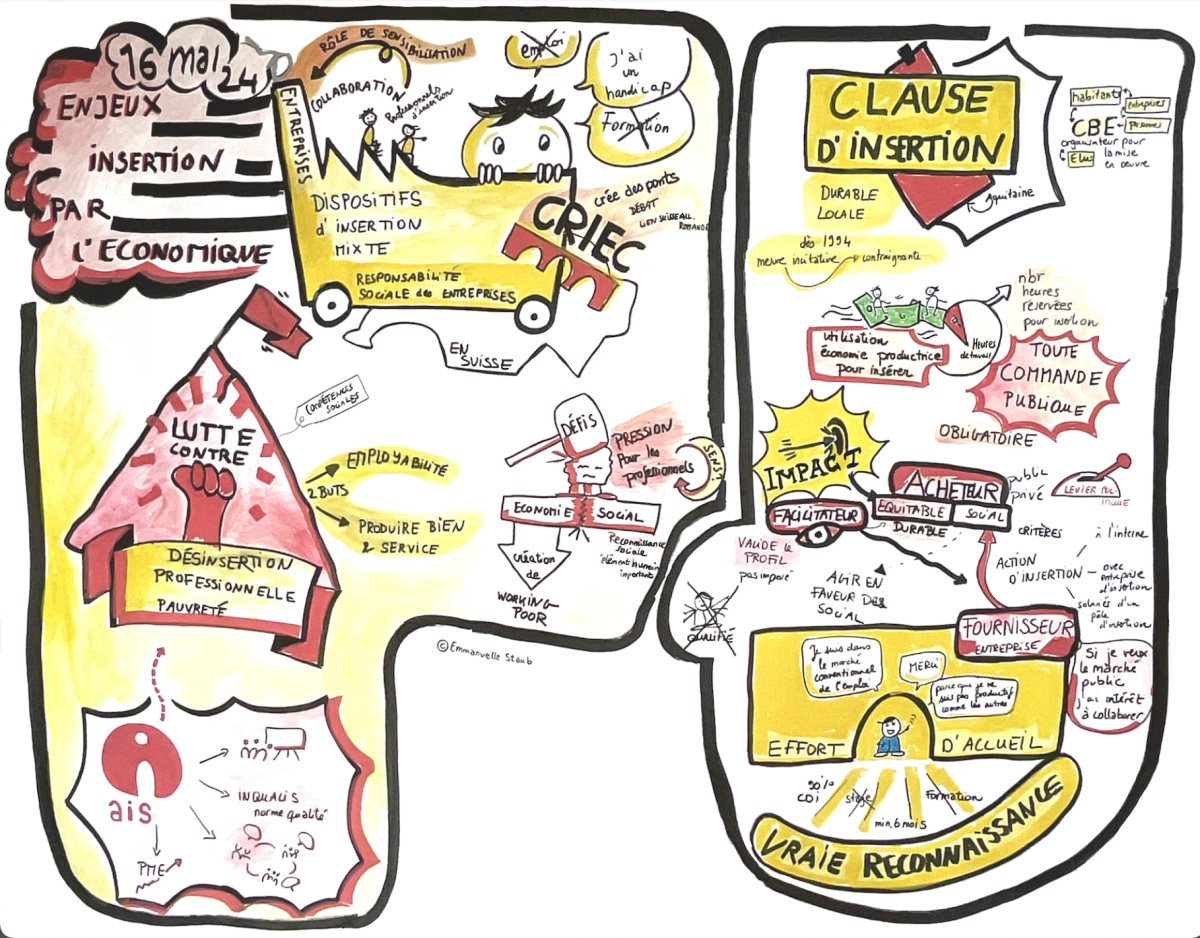 16 mai
24
ENJEUX
INSERTION
PAR
L'ECONOMIQUE
RÔLE DE SENSIBILISATION
COLLABORATION
Professionnels
d'insertion
ENTREPRISES
emploi
J'ai
un
handicap
Formation
DISPOSITIFS
d'INSERTION
MIXTE
RESPONSABILITÉ
SOCIALE des ENTREPRISES
CRIEC
crée des ponts
DÉBAT
LIEN SUISSE ALL.
ROMANDE
EN
SUISSE
LUTTE
CONTRE
DÉSINSERTION
PROFESSIONNELLE
PAUVRETÉ
COMPÉTENCES
SOCIALES
2 BUTS
EMPLOYABILITÉ
PRODUIRE BIEN
& SERVICE
DÉFIS
PRESSION
Pour les
professionnels
SENS!
ECONOMIE
SOCIAL
création
de
WORKING
POOR
Reconnaissance
sociale
élément humain
important
©Emmanuelle Staub
ais
INQUALIS
norme qualité
PME
CLAUSE
D'INSERTION
Aquitaine
habitants
entreprises
CBE
personnes
organisateur pour
la mise
en oeuvre
Elus
DURABLE
LOCALE
dès 1994
mesure incitative
contraignante
nbr
heures
réservées
pour insertion
Heures
de travail
utilisation
économie productrice
pour insérer
TOUTE
COMMANDE
PUBLIQUE
OBLIGATOIRE
IMPACT
ACHETEUR
public
privé
EQUITABLE
SOCIAL
DURABLE
FACILITATEUR
VALIDE le
PROFIL
pas imposé
QUALIFIÉ
AGIR EN
FAVEUR DU
SOCIAL
CRITÈRES
ACTION
D'INSERTION
à l'interne
avec
entreprise
d'insertion
salariés d'un
pôle
d'insertion
FOURNISSEUR
ENTREPRISE
Si je veux
le marché
public
j'ai intérêt
à collaborer
Je suis dans
le marché
conventionnel
de l'emploi
MERCI
parce que je ne
suis pas productif
comme les autres
EFFORT
D'ACCUEIL
90%
CDI
stage
min. 6 mois
Formation
VRAIE RECONNAISSANCE